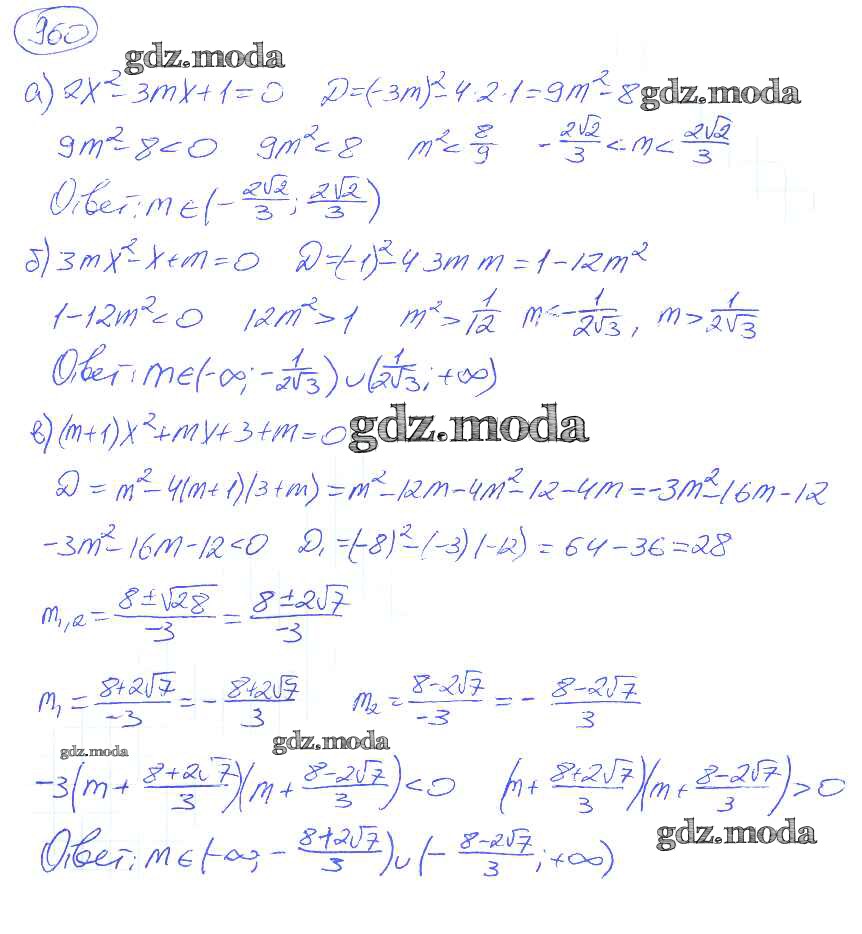 960
gdz.moda
а) 2x² - 3mx + 1 = 0 D = (-3m)² - 4·2·1 = 9m² - 8 gdz.moda
9m² - 8 < 0 9m² < 8 m² < 8/9 -2√2/3 < m < 2√2/3
Ответ: m ∈ (-2√2/3; 2√2/3)
б) 3mx² - x + m = 0 D = (-1)² - 4 3m m = 1 - 12m²
1 - 12m² < 0 12m² > 1 m² > 1/12 m < -1/2√3, m > 1/2√3
Ответ: m ∈ (-∞; -1/2√3) ∪ (1/2√3; +∞)
в) (m+1)x² + mx + 3 + m = 0 gdz.moda
D = m² - 4(m+1)(3+m) = m² - 12m - 4m² - 12 - 4m = -3m² - 16m - 12
-3m² - 16m - 12 < 0 D₁ = (-8)² - (-3)(-12) = 64 - 36 = 28
m₁,₂ = (8 ± √28)/-3 = (8 ± 2√7)/-3
m₁ = (8 + 2√7)/-3 = -(8 + 2√7)/3 m₂ = (8 - 2√7)/-3 = -(8 - 2√7)/3
gdz.moda gdz.moda
-3(m + (8 + 2√7)/3)(m + (8 - 2√7)/3) < 0 (m + (8 + 2√7)/3)(m + (8 - 2√7)/3) > 0
gdz.moda
Ответ: m ∈ (-∞; -(8 + 2√7)/3) ∪ (-(8 - 2√7)/3; +∞)